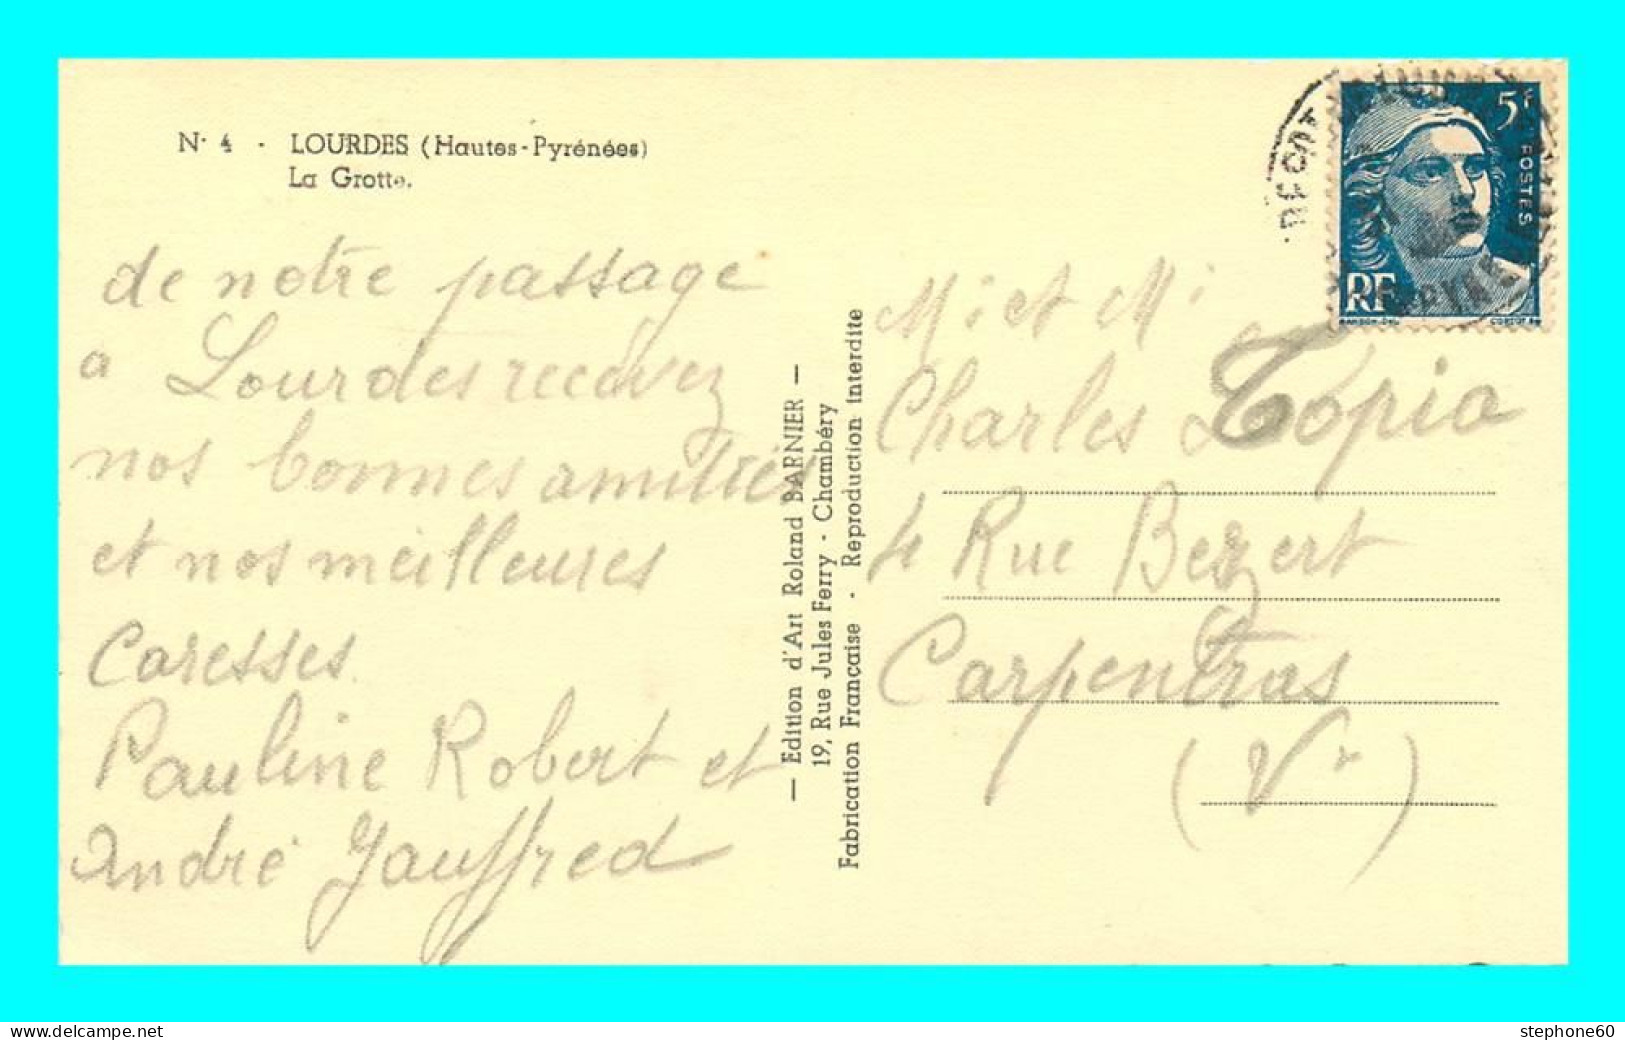 N° 4 - LOURDES (Hautes-Pyrénées)
La Grotte.
de notre passage
a Lourdes recevez
nos bonnes amitiés
et nos meilleures
Caresses.
Pauline Robert et
André Jauffred
— Edition d'Art Roland BARNIER —
19, Rue Jules Ferry - Chambéry
Fabrication Française - Reproduction Interdite
5F
POSTES
RF
M. et M.
Charles Topia
4 Rue Bezert
Carpentras
(Vse)
www.delcampe.net
stephone60